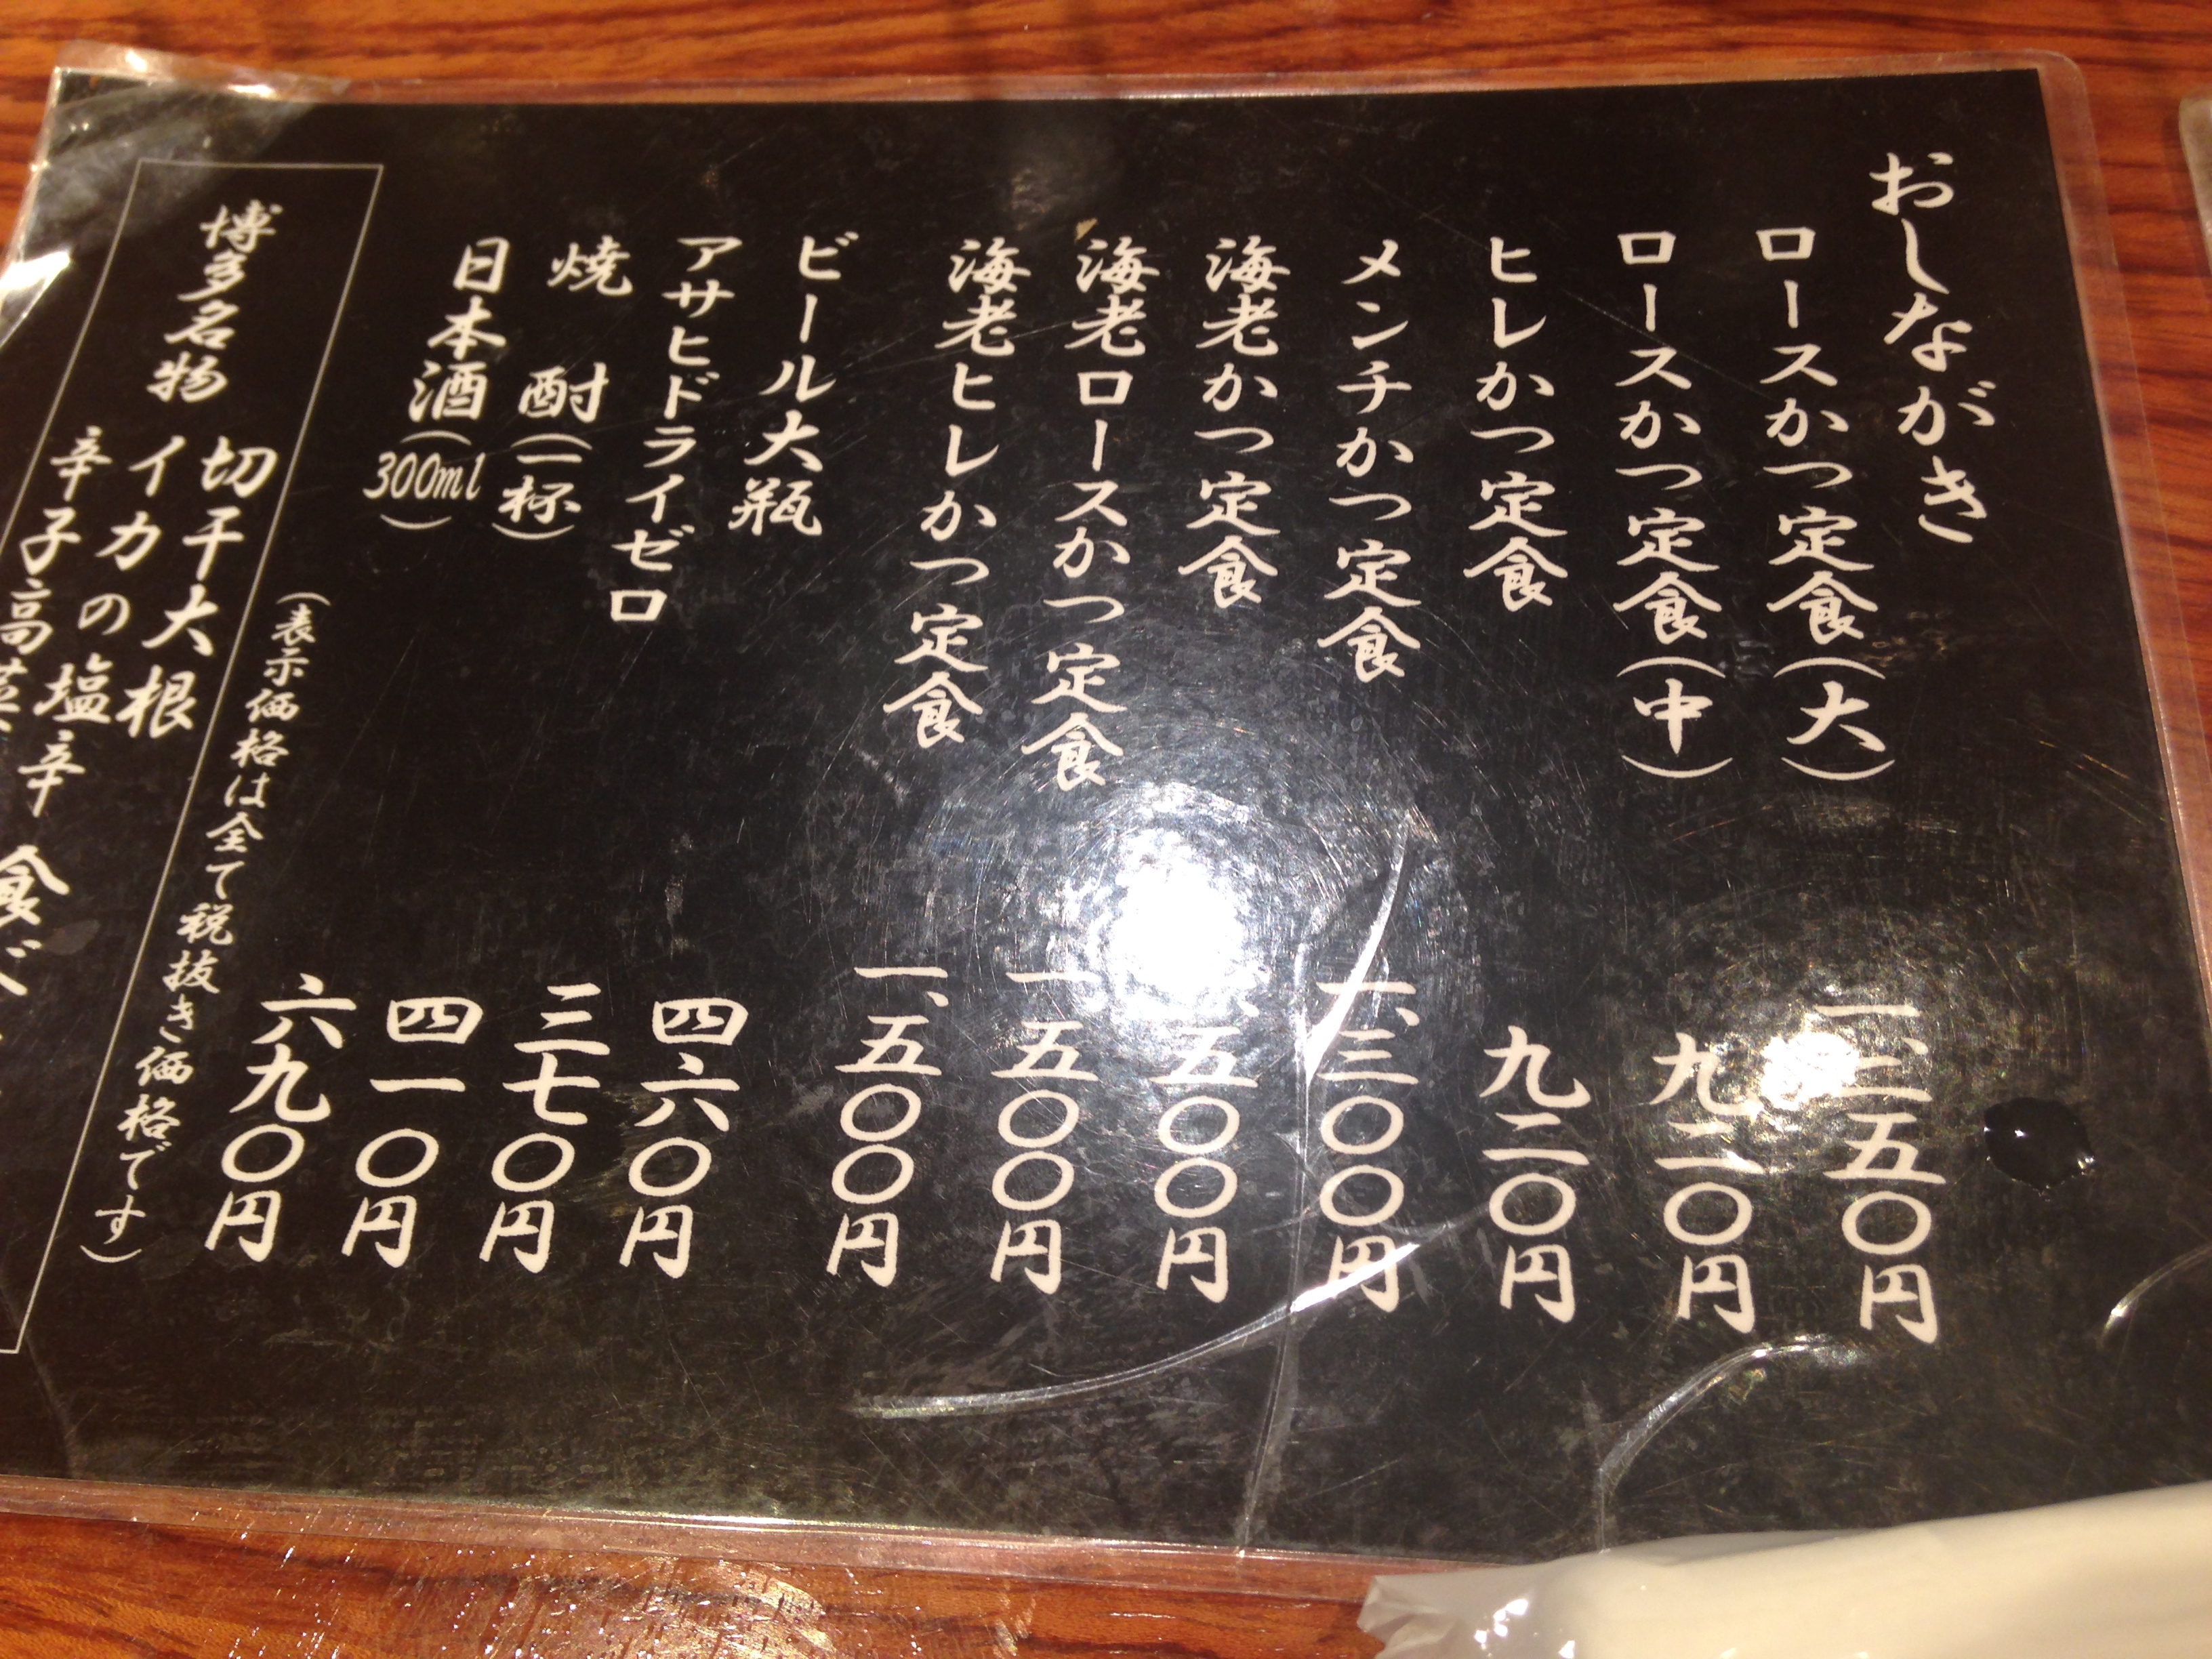 おしながき
ロースかつ定食(大) 一、二五〇円
ロースかつ定食(中) 九二〇円
ヒレかつ定食 九二〇円
メンチかつ定食 一、三〇〇円
海老かつ定食 一、五〇〇円
海老ロースかつ定食 一、五〇〇円
海老ヒレかつ定食 一、五〇〇円
ビール大瓶 四六〇円
アサヒドライゼロ 三七〇円
焼 酎(一杯) 四一〇円
日本酒(300ml) 六九〇円
(表示価格は全て税抜き価格です)
博多名物
切干大根
イカの塩辛 食べ
辛子高菜